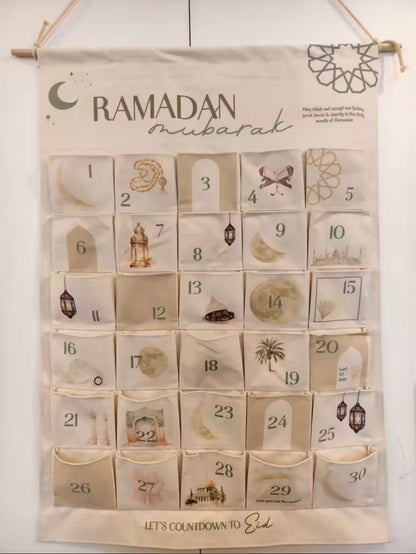 RAMADAN
mubarak
May Allah swt accept our fasting
good deeds & charity in this Holy
month of Ramadan
1
2
3
4
5
6
7
8
9
10
11
12
13
14
15
16
17
18
19
20
21
22
23
24
25
26
27
28
29
30
LET'S COUNTDOWN TO Eid